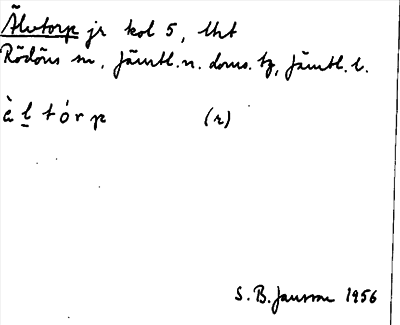 Älvtorp jr kol 5, lht
Rödöns sn, Jämtl. n. doms. tg, Jämtl. l.
à l t ó r p (r)
S. B. Jansson 1956